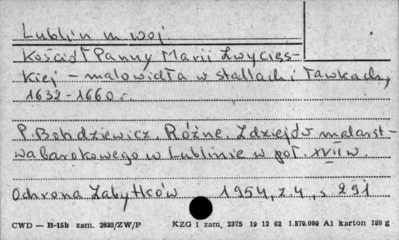 Lublin m woj
Kościół Panny Marii Zwycięs-
kiej – malowidła w stallach i ławkach,
1632-1660 r.
P. Bohdziewicz Różne. Z dziejów malarst-
wa barokowego w Lublinie w poł. XVII w.
Ochrona Zabytków 1954, z.4, s 291
CWD — B-15b zam. 2692/ZW/P KZG 1 zam. 2375 19 12 62 1.570.000 A1 karton 180 g